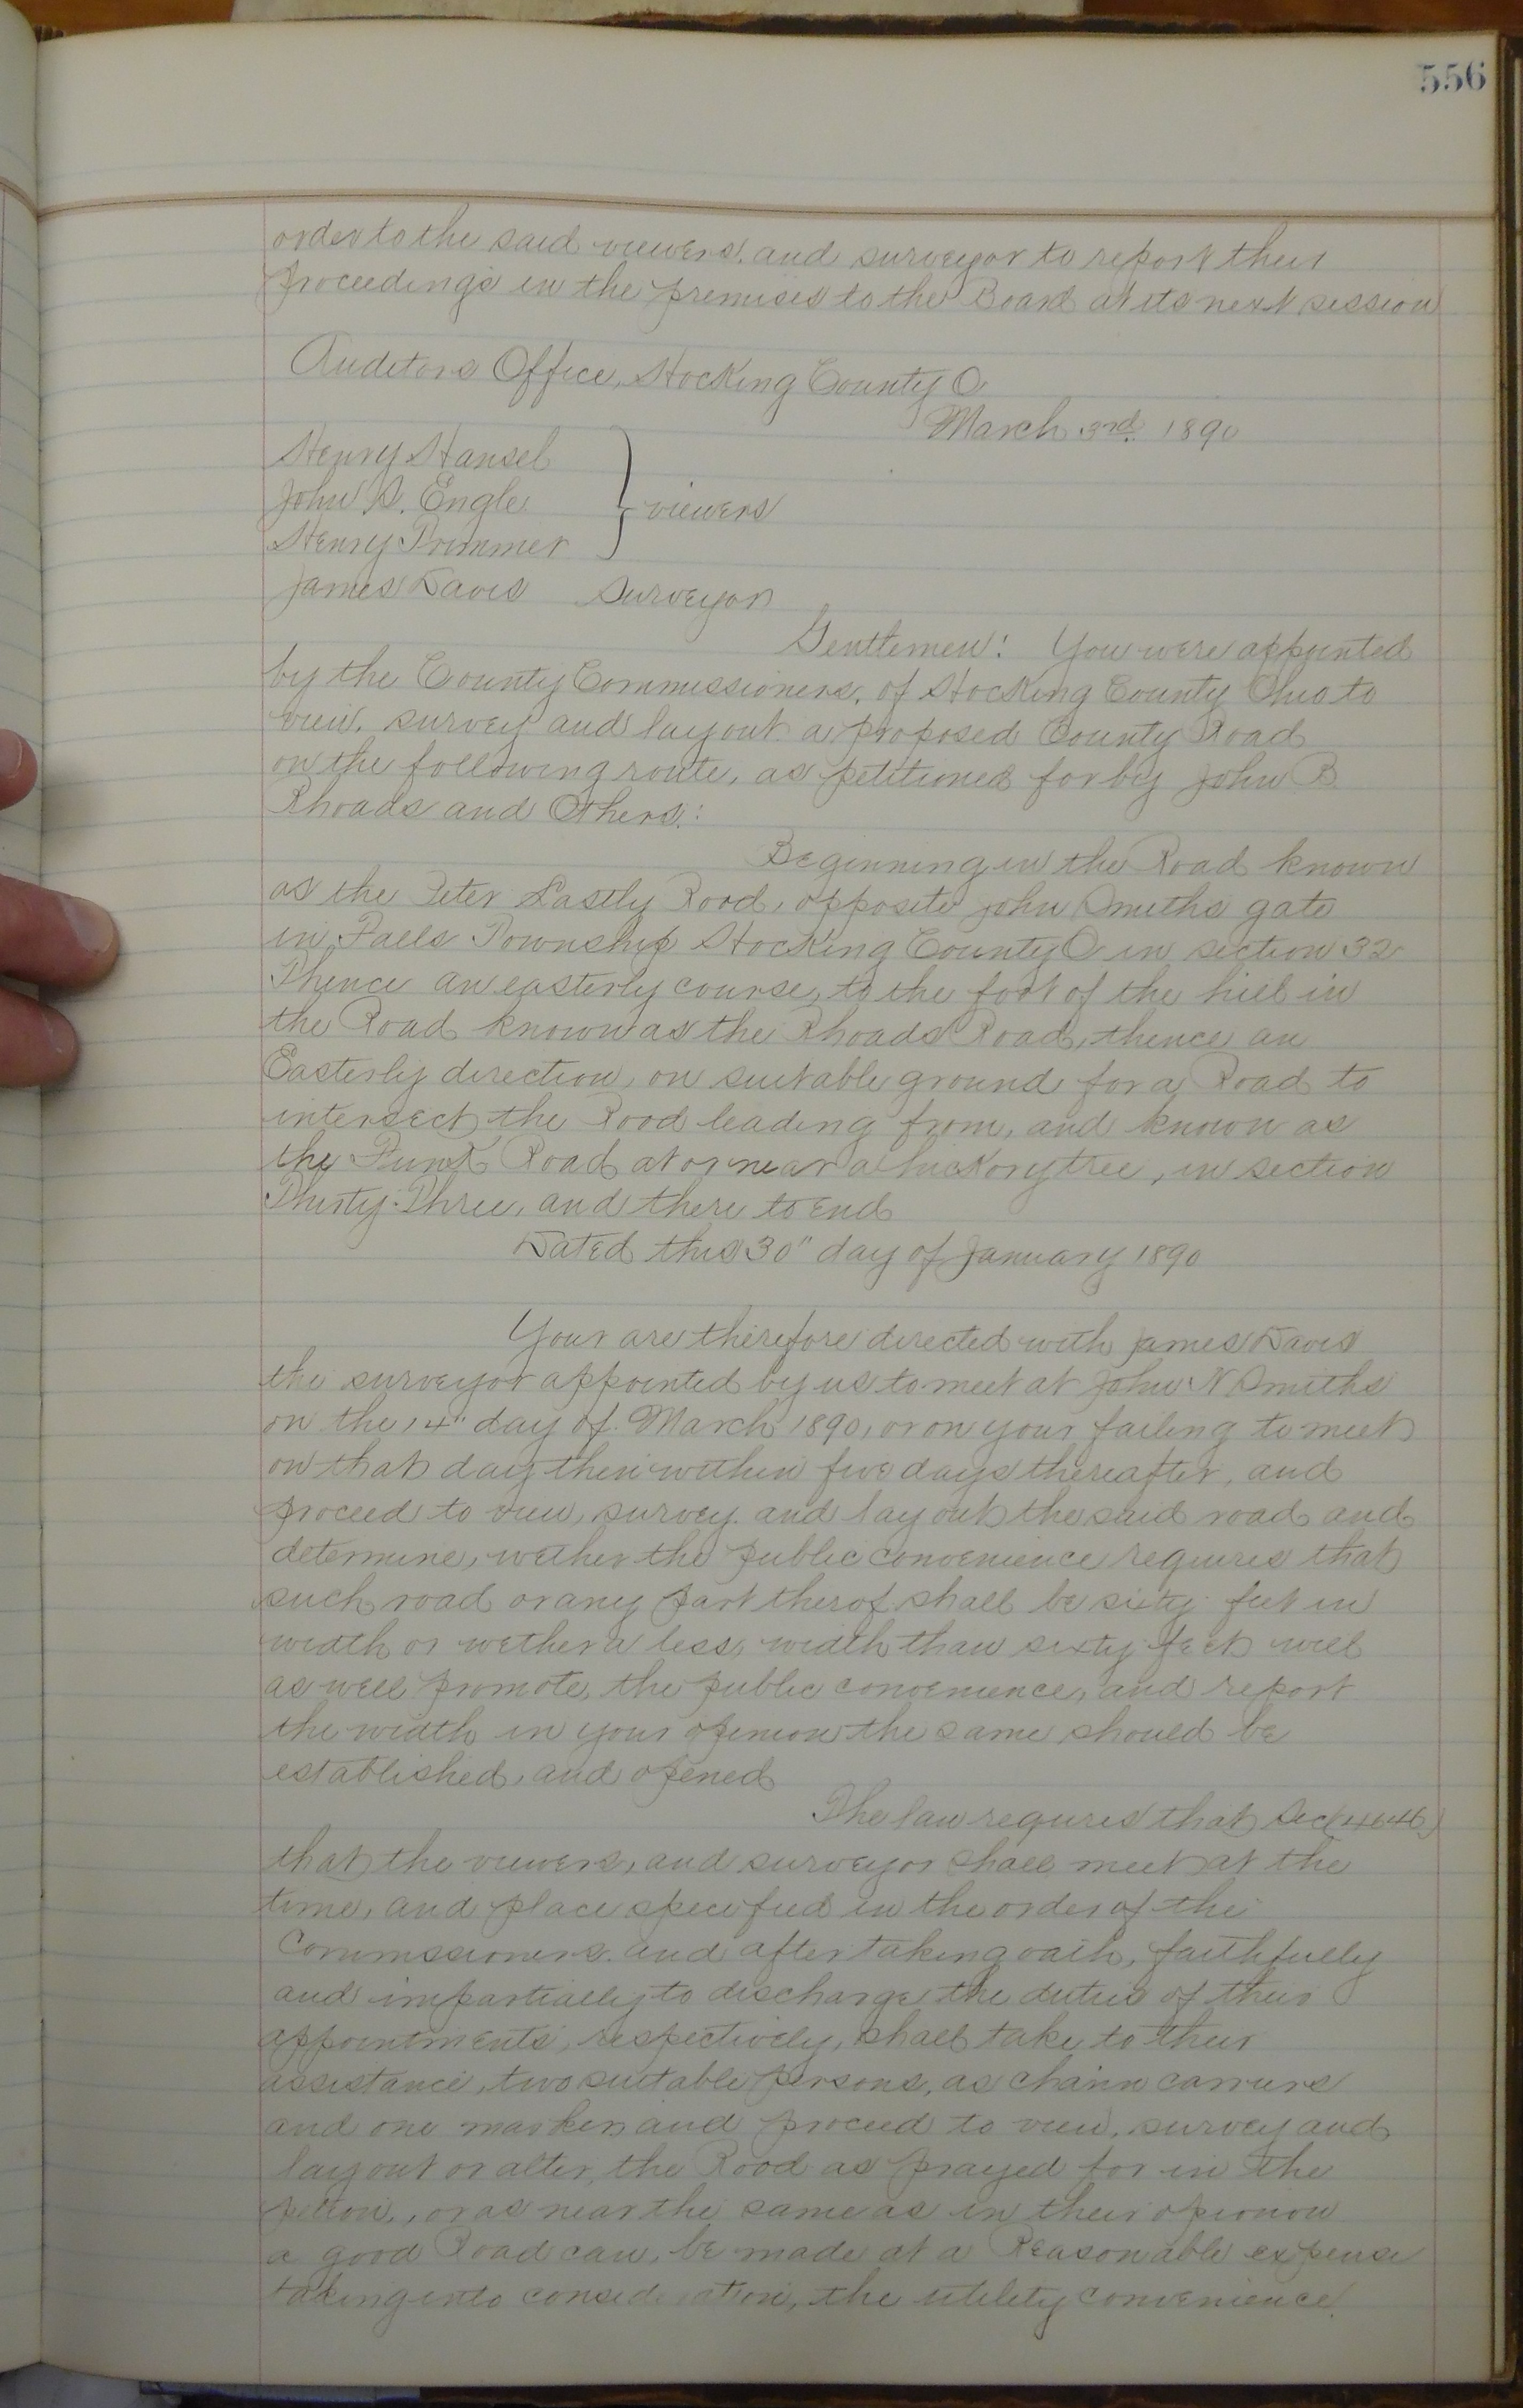 556
order to the said viewers. and surveyor to report their
proceedings in the premises to the Board at its next session
Auditors Office, Hocking County O
March 3rd. 1890
Henry Hansel
John S. Engle } viewers
Henry Primmer
James Davis Surveyor
Gentlemen: You were appointed
by the County Commissioners, of Hocking County Ohio to
view, survey and layout a proposed County Road
on the following route, as petitioned for by John B.
Rhoads and Others:
Beginning in the Road known
as the Peter Lastly Road, opposite John Smiths gate
in Falls Township Hocking County O in section 32
Thence an easterly course, to the foot of the hill in
the Road known as the Rhoads Road, thence an
Easterly direction, on suitable ground for a Road to
intersect, the Road leading from, and known as
the Funk Road at or near a hickory tree, in section
Thirty-Three, and there to end
Dated this 30" day of January 1890
Your are therefore directed with James Davis
the surveyor appointed by us to meet at John N Smiths
on the 14" day of March 1890, or on your failing to meet
on that day then within five days thereafter, and
proceed to view, survey. and lay out the said road and
determine, wether the public convenience requires that
such road or any part therof shall be sixty feet in
width or wether a less, width than sixty feet will
as well promote, the public convenience, and report
the width in your opinion the same should be
established, and opened
The law requres that Sec (4646)
that the viewers, and surveyor shall meet at the
time, and place specified in the order of the
Commssioners. and after taking oath, faithfully
and impartially to discharge the duties of their
appointments, respectively, shall take to their
assistance, two suitable persons, as chainn carriers
and one marker, and proceed to view, survey and
layout or alter, the Road as prayed for in the
petion,, or as near the same as in their opionon
a good Road can, be made at a Reasonable expense
taking into consideration, the utility convenience